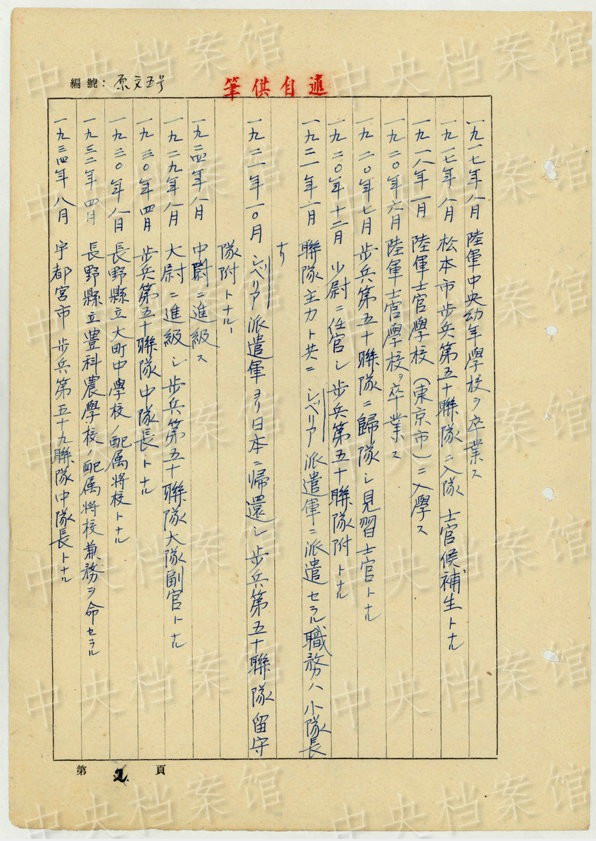 編號：原文五号
筆供自述
一九一七年八月 陸軍中央幼年學校ヲ卒業ス
一九一七年八月 松本市歩兵第五十聯隊ニ入隊 士官候補生トナル
一九一八年一月 陸軍士官學校(東京市)ニ入學ス
一九二〇年六月 陸軍士官學校ヲ卒業ス
一九二〇年七月 歩兵第五十聯隊ニ歸隊シ見習士官トナル
一九二〇年十二月 少尉ニ任官シ歩兵第五十聯隊附トナル
一九二一年一月 聯隊主力ト共ニシベリア派遣軍ニ派遣セラル職務ハ小隊長
ナリ
一九二一年一〇月 シベリア派遣軍ヨリ日本ニ帰還シ歩兵第五十聯隊留守
隊附トナル
一九二四年八月 中尉ニ進級ス
一九二九年八月 大尉ニ進級シ歩兵第五十聯隊大隊副官トナル
一九三〇年四月 歩兵第五十聯隊中隊長トナル
一九三〇年八月 長野縣立大町中學校ノ配属将校トナル
一九三二年四月 長野縣立豊科農學校ノ配属将校兼務ヲ命セラル
一九三四年八月 宇都宮市歩兵第五十九聯隊中隊長トナル
第 2 頁
中央档案馆